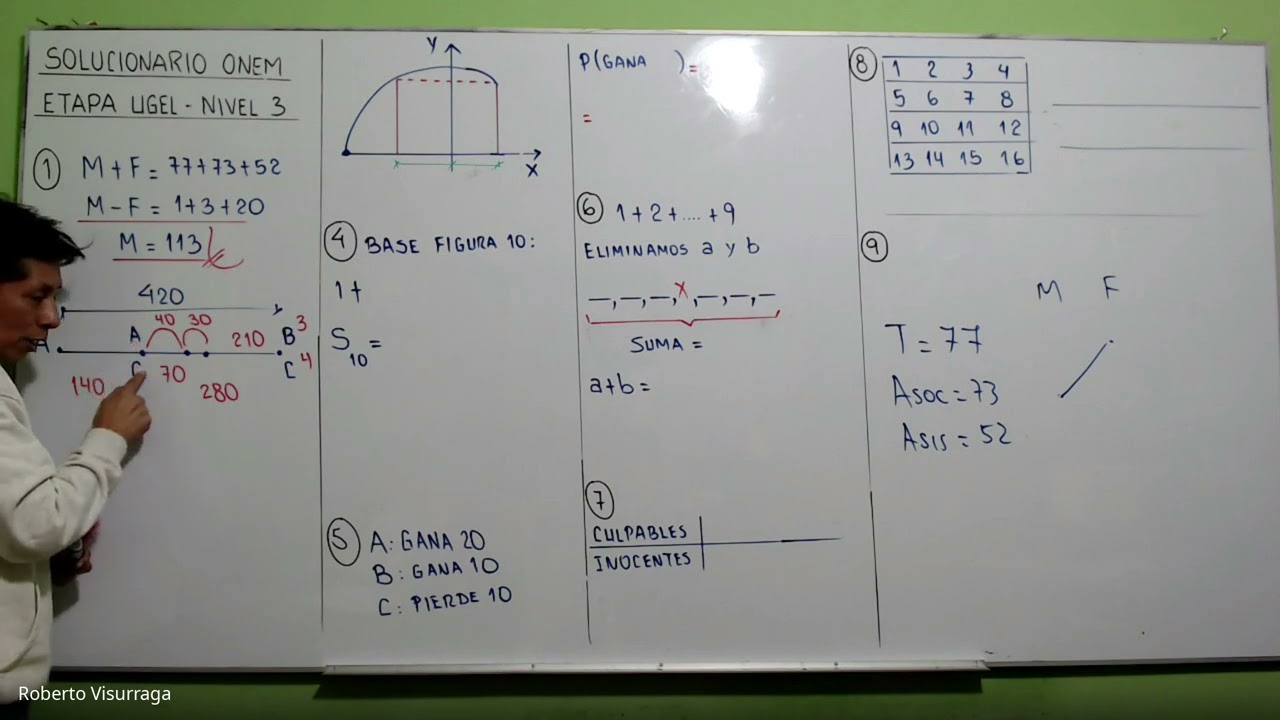 SOLUCIONARIO ONEM
ETAPA UGEL - NIVEL 3
1 M + F = 77+73+52
M - F = 1+3+20
M = 113
420
40 30
A 210 B 3
A C 70 C 4
140 280
Y
X
4 BASE FIGURA 10:
1+
S10 =
5 A: GANA 20
B: GANA 10
C: PIERDE 10
P(GANA ) =
=
6 1+2+....+9
ELIMINAMOS a y b
_,_,_,X,_,_,_
SUMA =
a+b =
7
CULPABLES
INOCENTES
8
1 2 3 4
5 6 7 8
9 10 11 12
13 14 15 16
9
M F
T = 77
Asoc = 73
Asis = 52
Roberto Visurraga